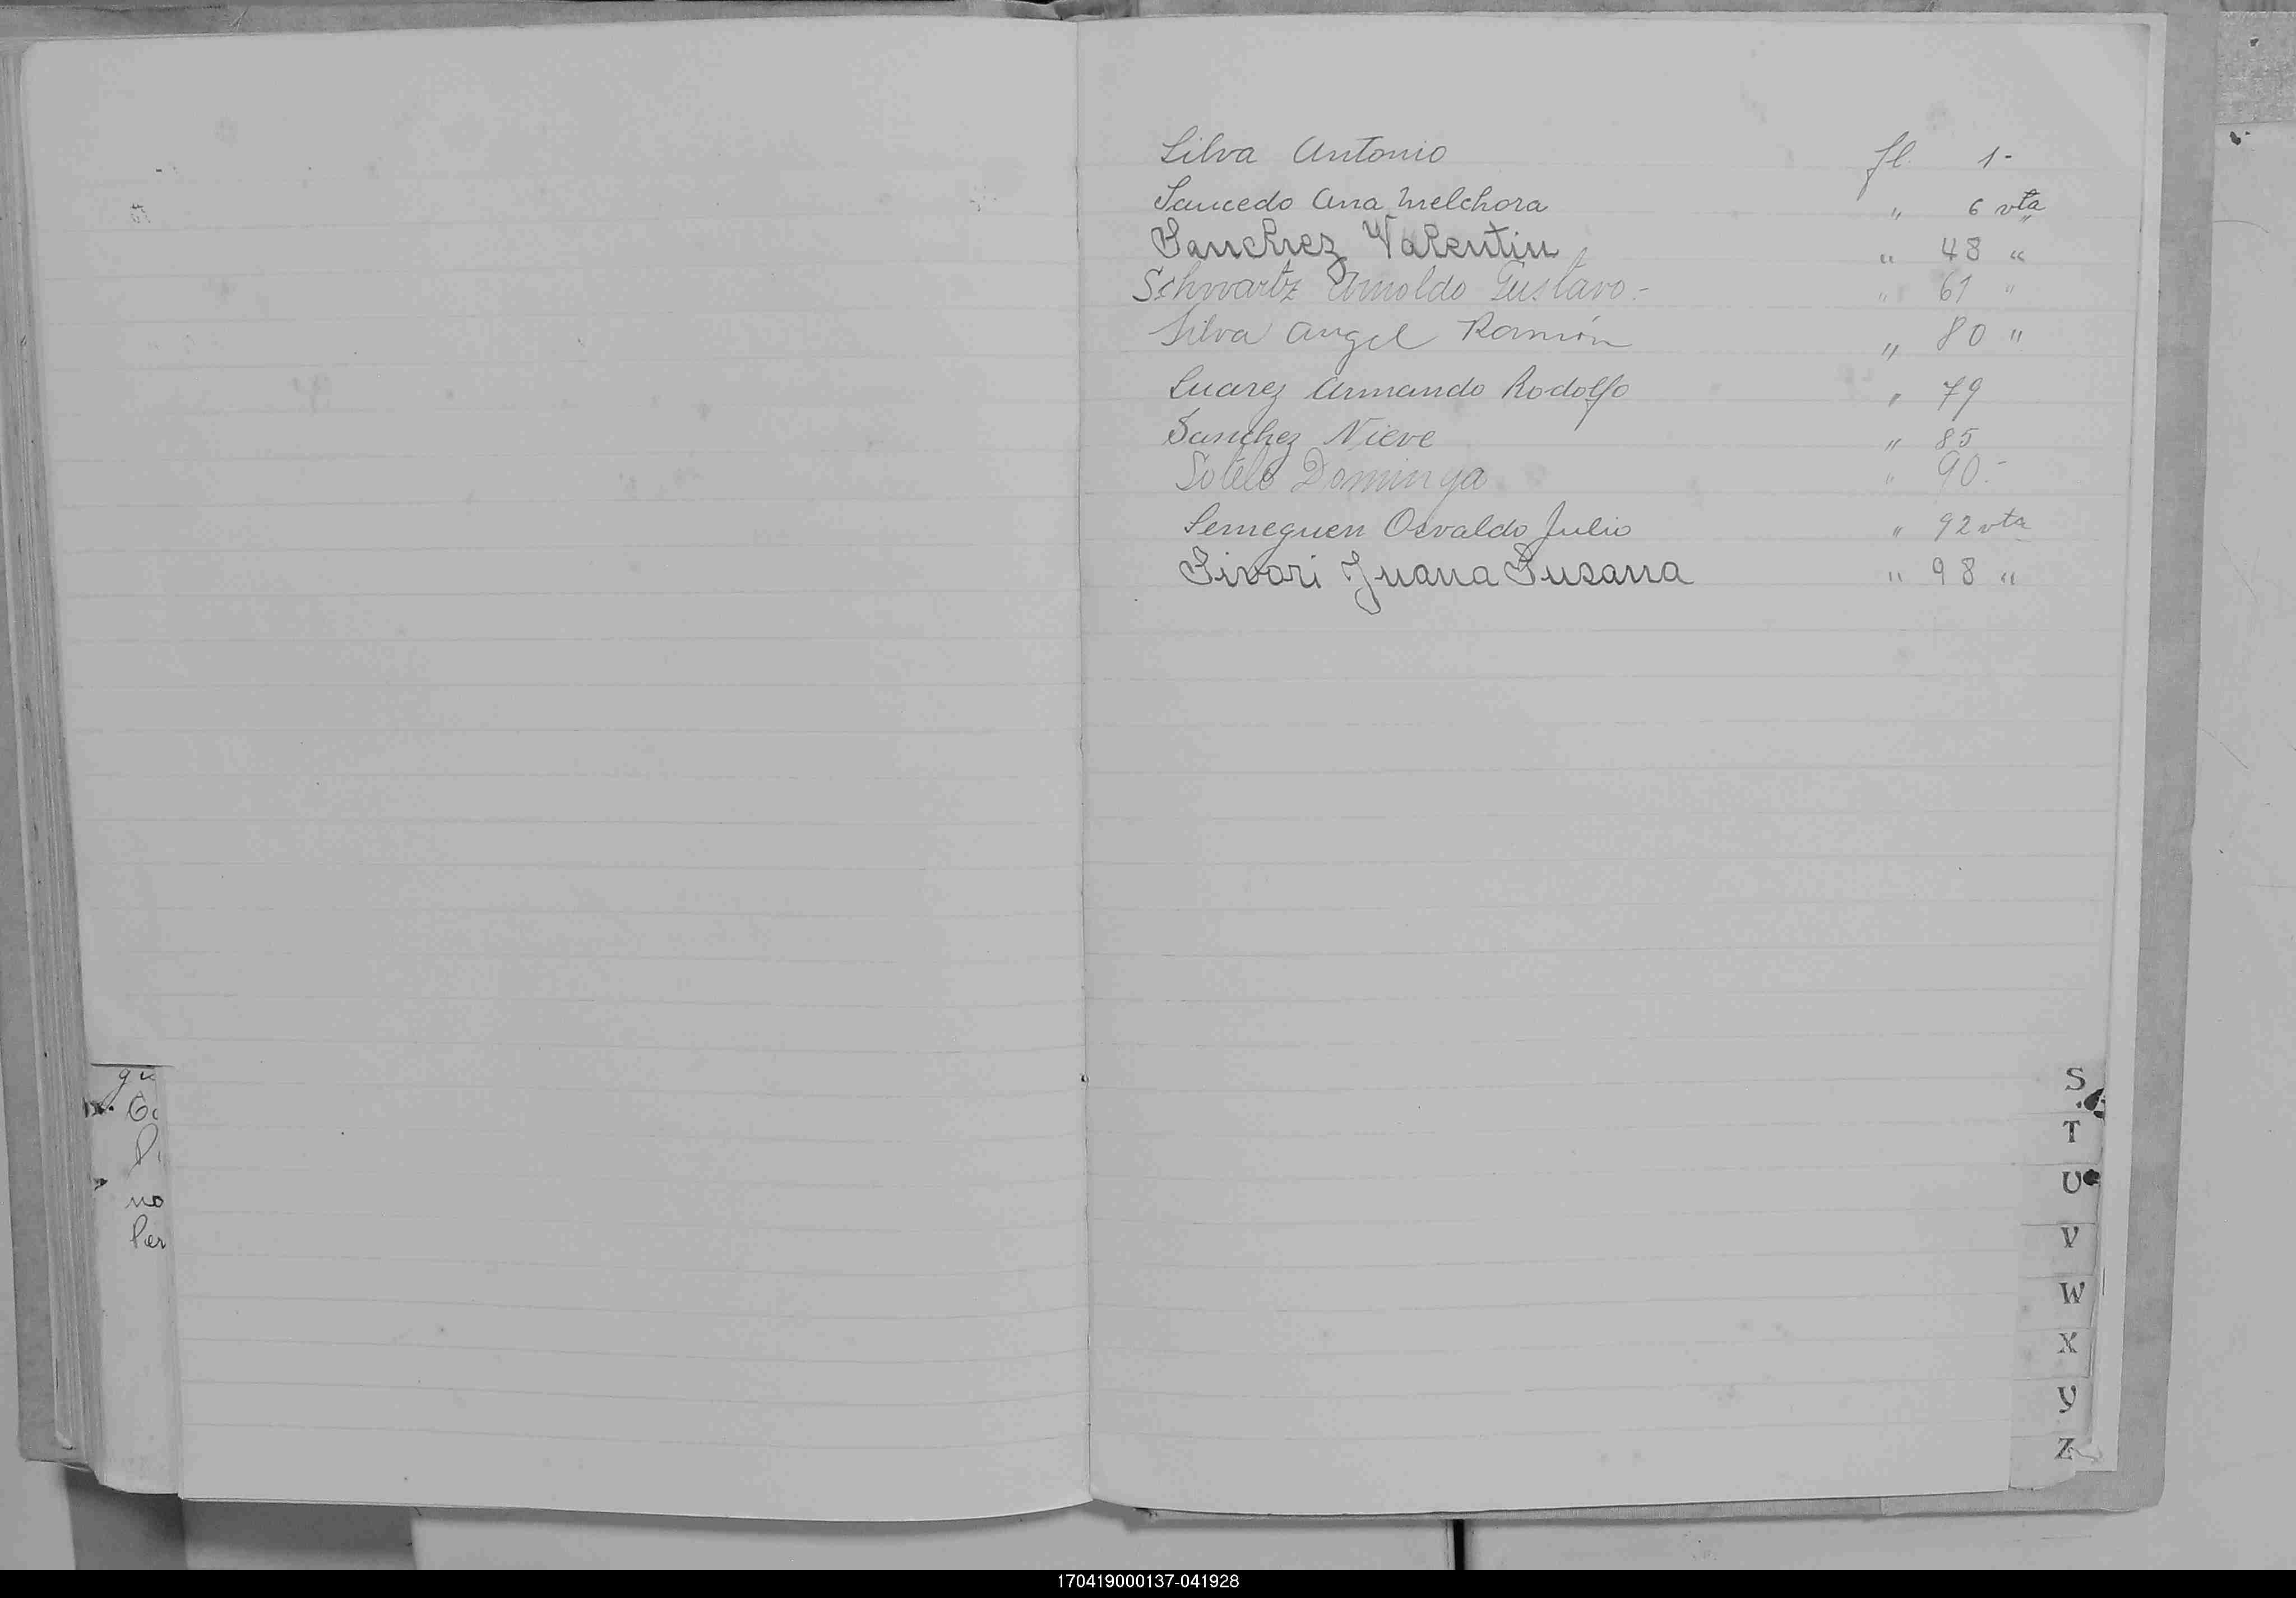 gu
Co
P
no
Per
Silva Antonio fl. 1-
Saucedo Ana Melchora " 6 vta
Sanchez Valentin " 48 "
Schwartz Arnoldo Gustavo.- " 61 "
Silva Angel Ramón " 80 "
Suarez Armando Rodolfo " 79
Sanchez Nieve " 85
Sotelo Dominga " 90.-
Semeguen Osvaldo Julio " 92 vta
Sivori Juana Susana " 98 "
S
T
U
V
W
X
Y
Z
170419000137-041928